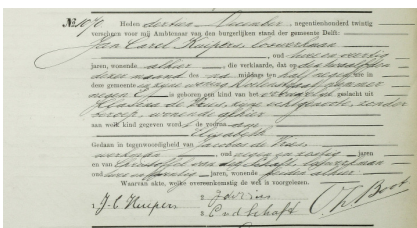 No. 1076 Heden dertien November, negentienhonderd twintig
verscheen voor mij Ambtenaar van den burgerlijken stand der gemeente Delft:
Jan Carel Kuipers, loswerkman
, oud twee en veertig
jaren, wonende alhier, die verklaarde, dat op den twaalfden
dezer maand des na middags ten half negen ure in
deze gemeente in zijne woning
negen is geboren een kind van het vrouwelijk geslacht uit
Klasina de Vries, zijne echtgenoote, zonder
beroep, wonende alhier
aan welk kind gegeven werd de voornaam
Elisabeth
Gedaan in tegenwoordigheid van Jacobus de Vries,
werkman, oud en zestig jaren
en van van der Schaft, werkman
oud twee en jaren, wonende beiden alhier
Waarvan akte, welke overeenkomstig de wet is voorgelezen.
1. J. C. Kuipers 2. J de Vries
3. C v d Schaft